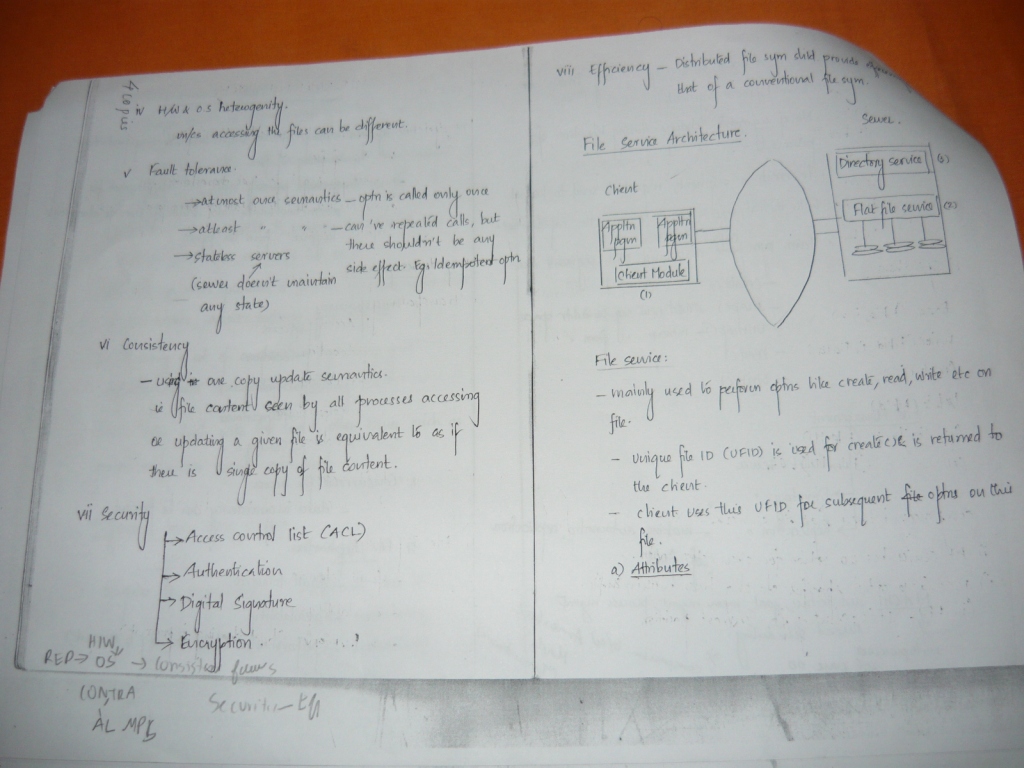 4 copies
iv H/W & O.S heterogenity.
m/cs accessing the files can be different.
v Fault tolerance.
→ atmost once semautics – optn is called only once
→ atleast " " – can 've repeated calls, but
there shouldn't be any
side effect. Eg: Idempotent optn
→ stateless servers
(server doesn't maintain
any state)
vi Consistency
– using one copy update semautics.
ie file content seen by all processes accessing
or updating a given file is equivalent to as if
there is single copy of file content.
vii Security
→ Access control list (ACL)
→ Authentication
→ Digital Signature
→ Encryption.
H/W
REP → OS →
CONTRA
AL MP
Securitie – Eff
viii Efficiency – Distributed file sym shld provide
that of a conventional file sym.
File Service Architecture.
Server.
Directory service
Client
Flat file service
Appltn
pgm
Appltn
pgm
Client Module
(1)
File service:
– mainly used to perform optns like create, read, write etc on
file.
– Unique file ID (UFID) is used for create & is returned to
the client.
– client uses this UFID for subsequent optns on this
file.
a) Attributes